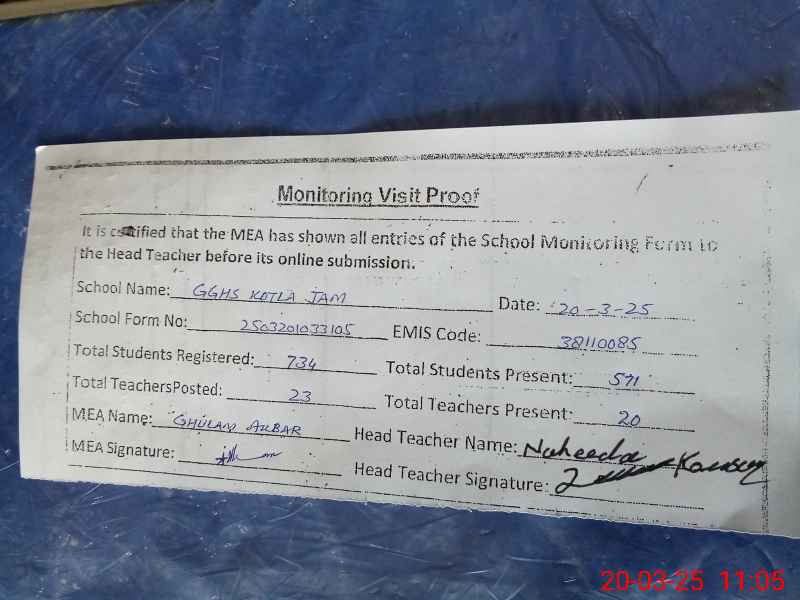 Monitoring Visit Proof
It is certified that the MEA has shown all entries of the School Monitoring Form to
the Head Teacher before its online submission.
School Name: GGHS KOTLA JAM Date: 20-3-25
School Form No: 2503201033105 EMIS Code: 38110085
Total Students Registered: 734 Total Students Present: 571
Total TeachersPosted: 23 Total Teachers Present: 20
MEA Name: GHULAM AKBAR Head Teacher Name: Naheeda Kausar
MEA Signature: Head Teacher Signature:
20-03-25 11:05